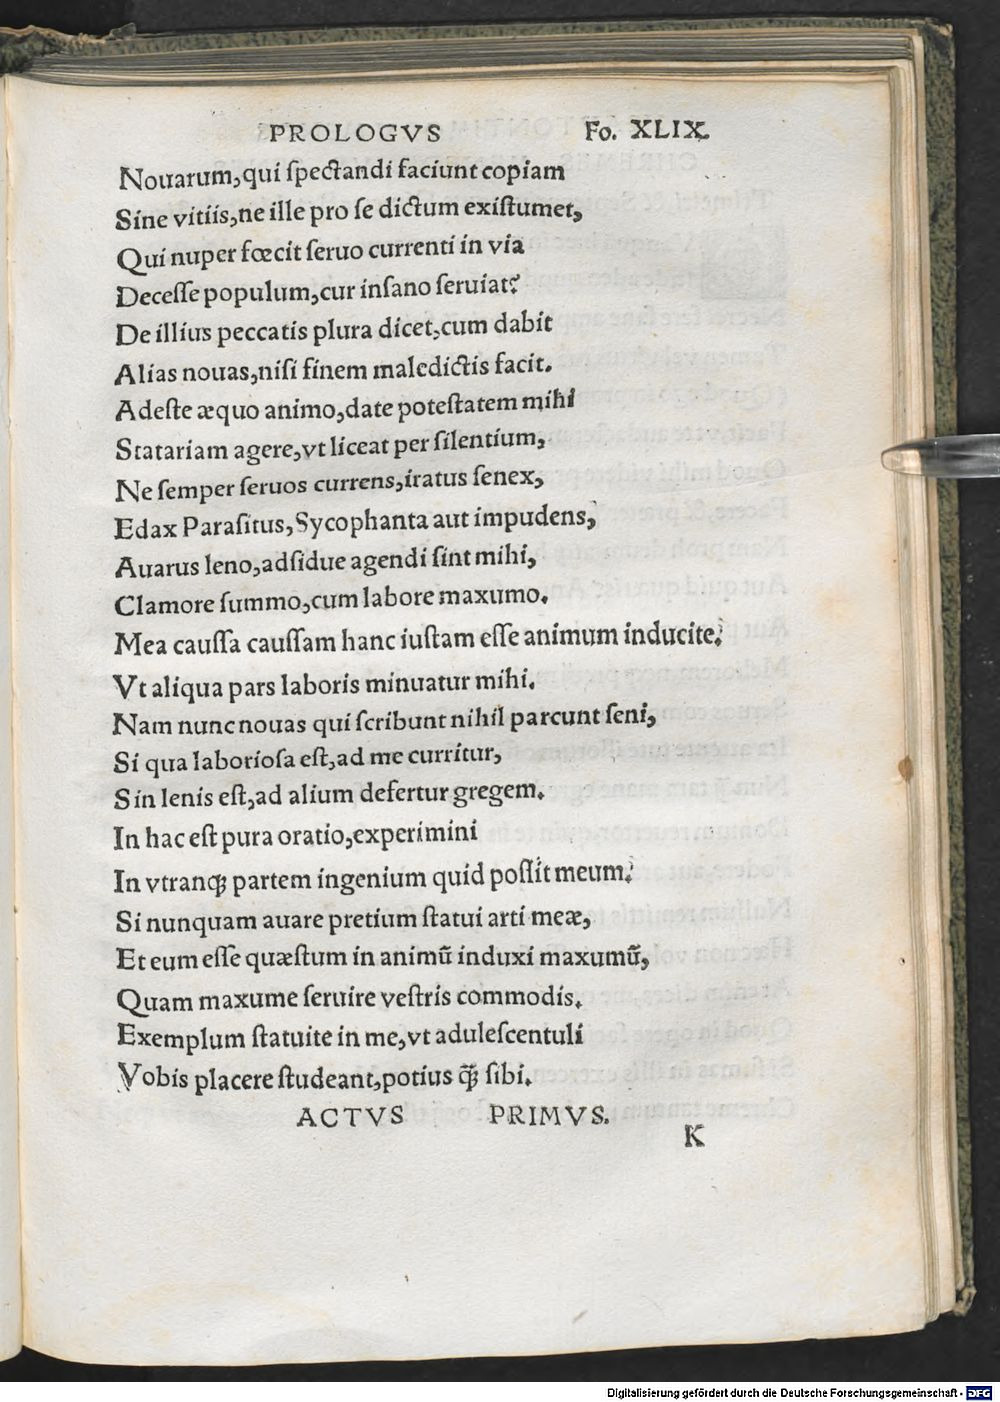 PROLOGVS Fo. XLIX.
Nouarum,qui ſpectandi faciunt copiam
Sine vitiis,ne ille pro ſe dictum exiſtumet,
Qui nuper fœcit ſeruo currenti in via
Deceſſe populum,cur inſano ſeruiat?
De illius peccatis plura dicet,cum dabit
Alias nouas,niſi finem maledictis facit.
Adeſte æquo animo,date poteſtatem mihi
Statariam agere,vt liceat per ſilentium,
Ne ſemper ſeruos currens,iratus ſenex,
Edax Paraſitus,Sycophanta aut impudens,
Auarus leno,adſidue agendi ſint mihi,
Clamore ſummo,cum labore maxumo.
Mea cauſſa cauſſam hanc iuſtam eſſe animum inducite.
Vt aliqua pars laboris minuatur mihi.
Nam nunc nouas qui ſcribunt nihil parcunt ſeni,
Si qua laborioſa eſt,ad me curritur,
Sin lenis eſt,ad alium defertur gregem.
In hac eſt pura oratio,experimini
In vtranqꝫ partem ingenium quid poſſit meum.
Si nunquam auare pretium ſtatui arti meæ,
Et eum eſſe quæſtum in animũ induxi maxumũ,
Quam maxume ſeruire veſtris commodis.
Exemplum ſtatuite in me,vt aduleſcentuli
Vobis placere ſtudeant,potius q̃ꝫ ſibi.
ACTVS PRIMVS.
K
Digitalisierung gefördert durch die Deutsche Forschungsgemeinschaft - DFG